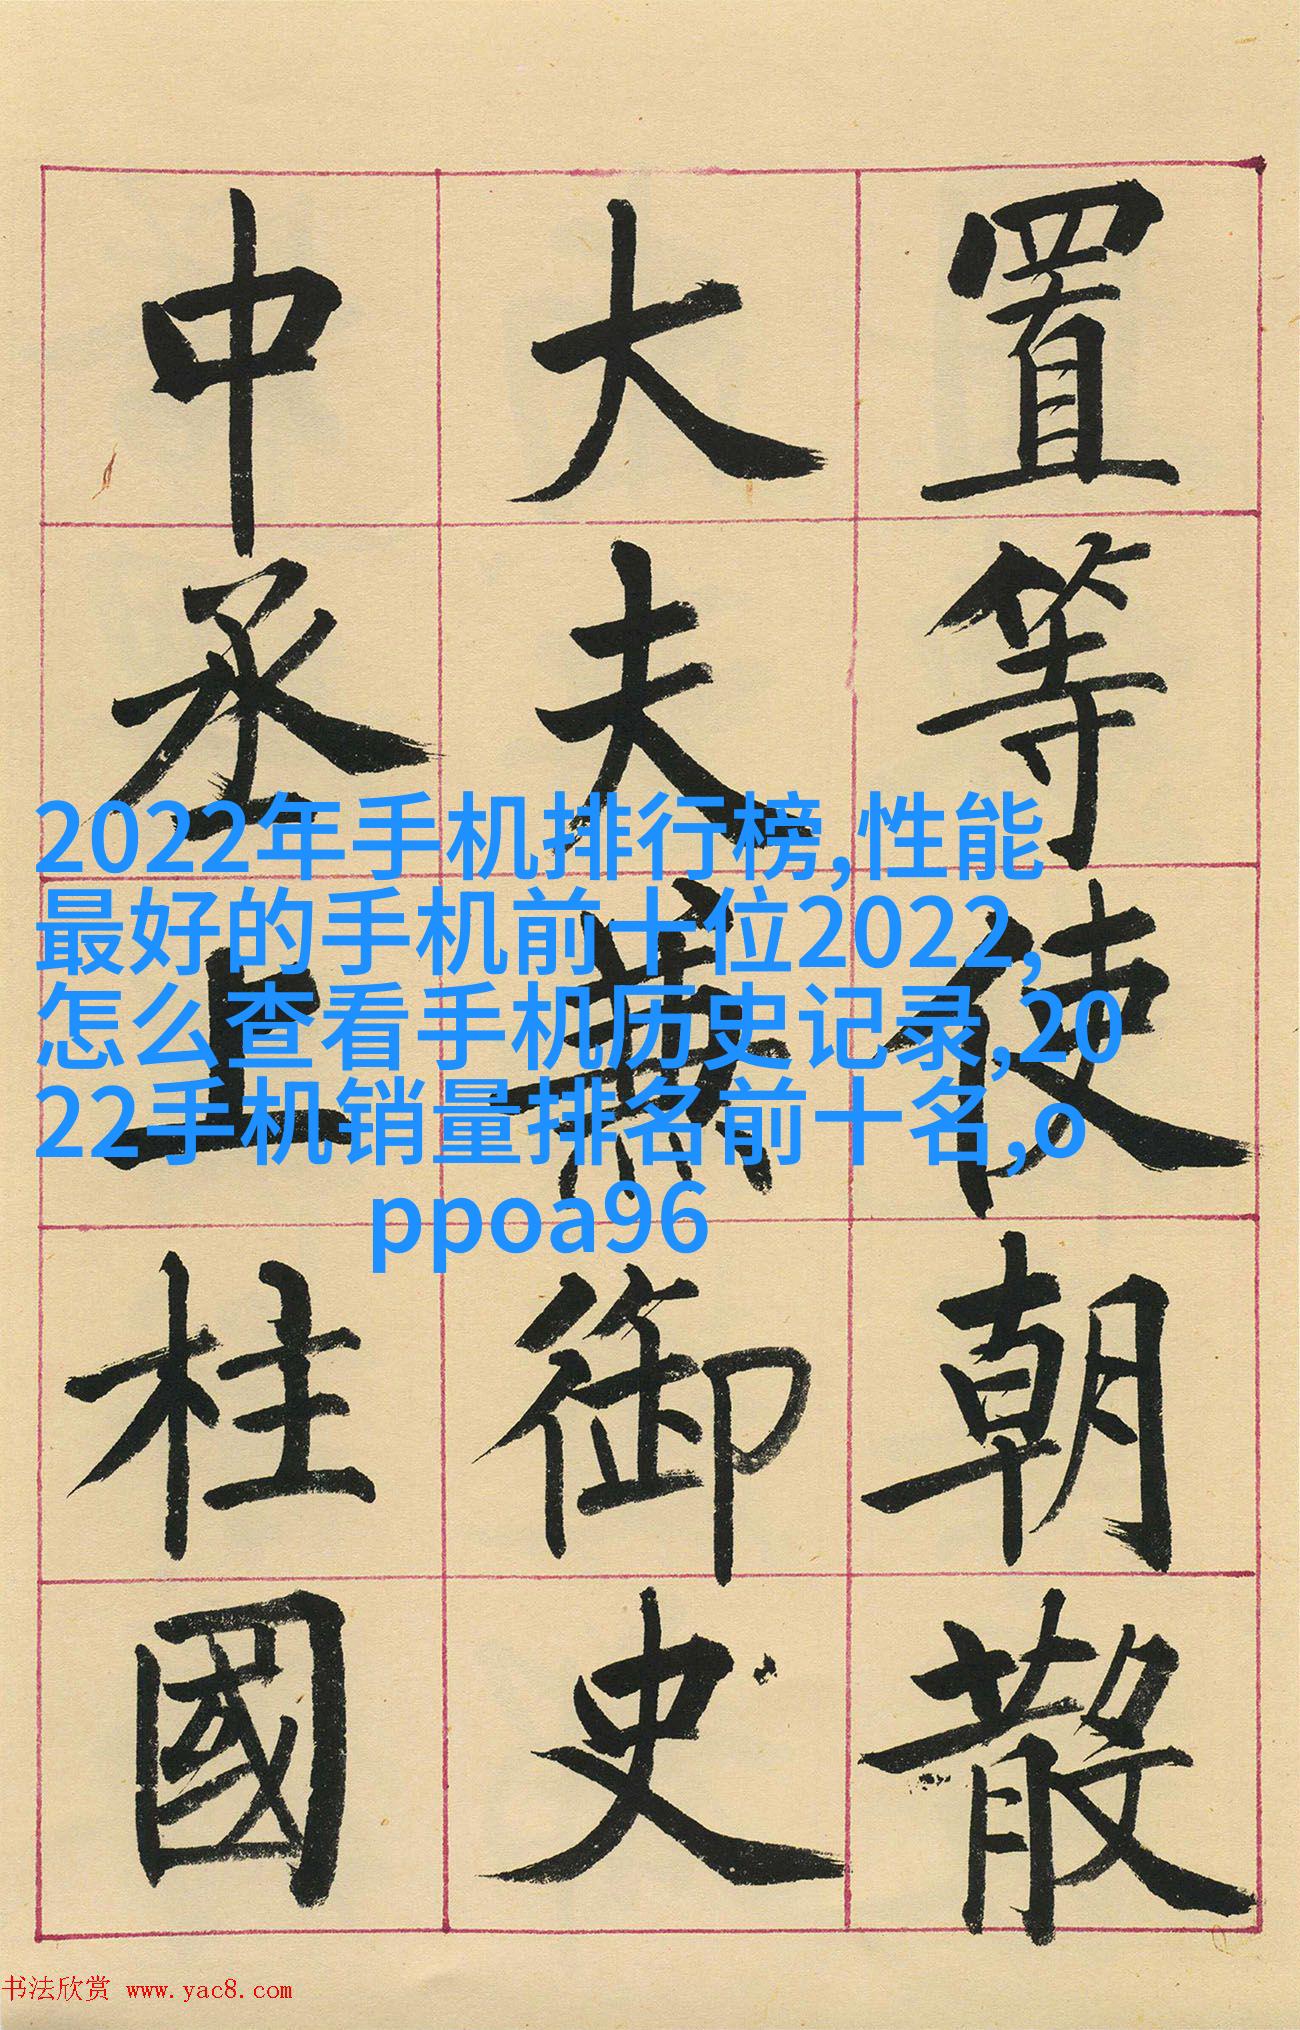 置等使朝散
大夫兼御史
中丞上柱國
2022年手机排行榜,性能
最好的手机前十位2022,
怎么查看手机历史记录,20
22手机销量排名前十名,o
ppoa96
书法欣赏 www.yac8.com